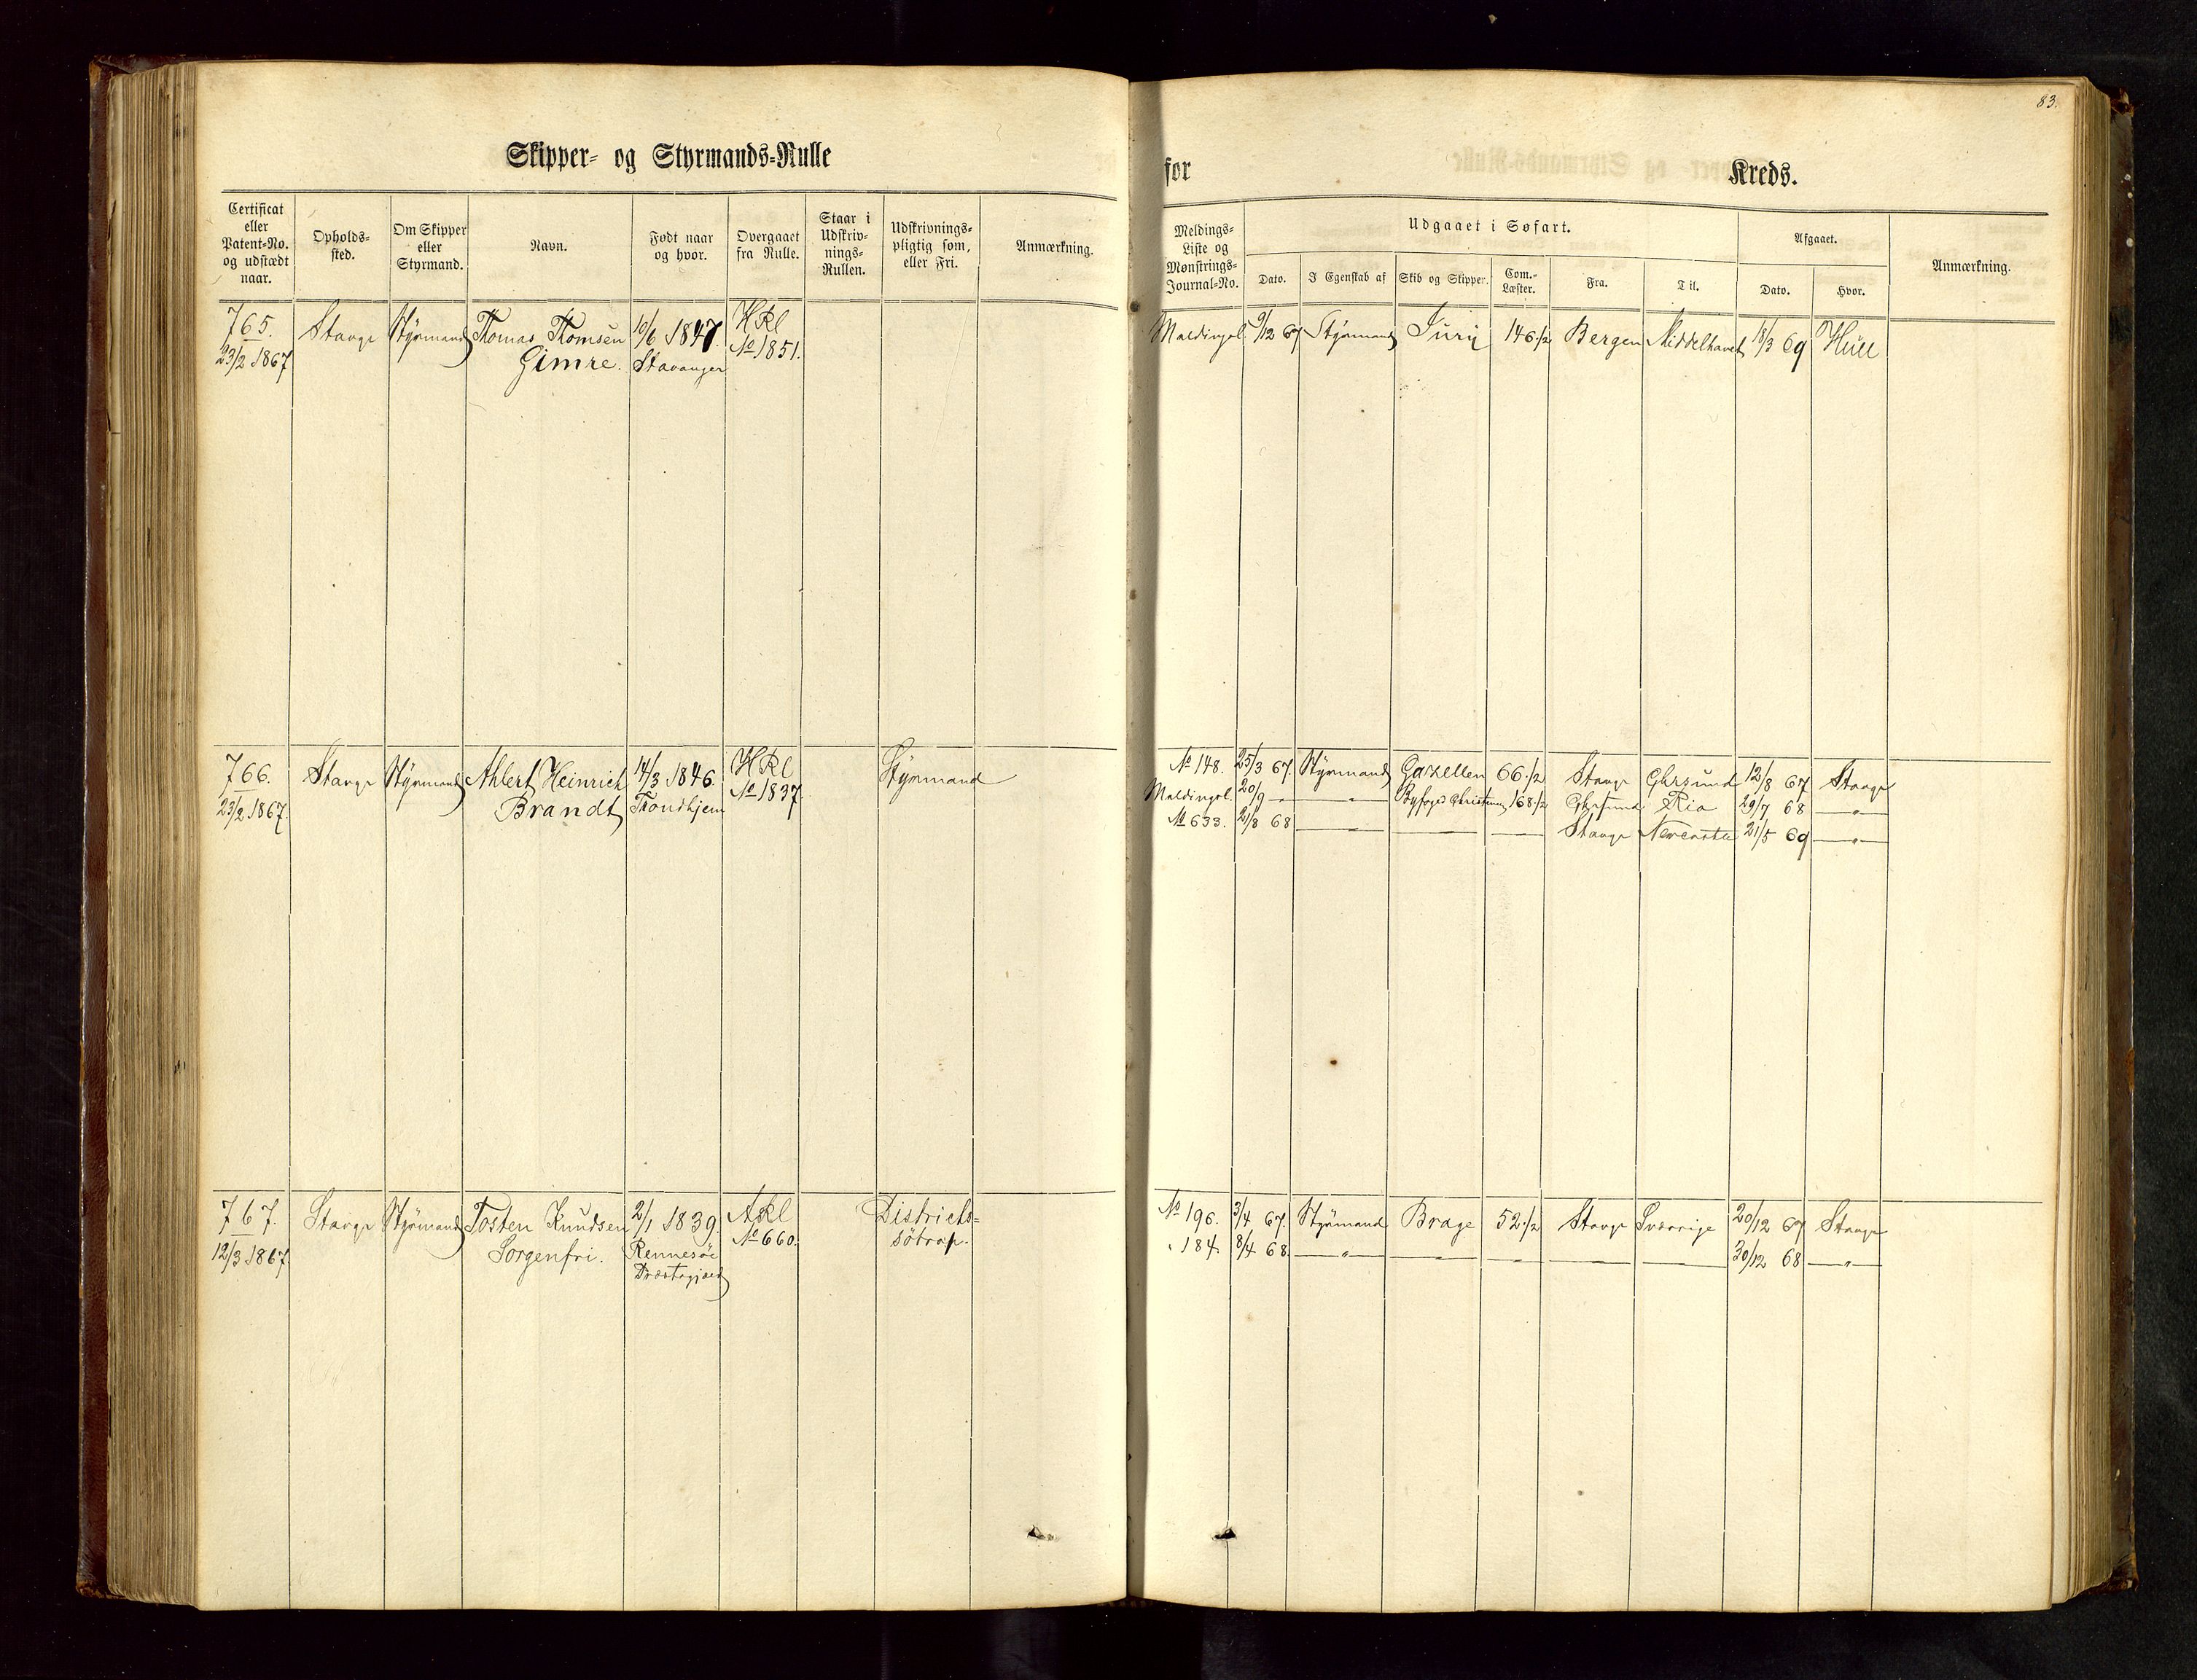 83.
Skipper- og Styrmands-Rulle
for
Kreds.
Certificat eller Patent-No. og udstædt naar.
Opholds-sted.
Om Skipper eller Styrmand.
Navn.
Født naar og hvor.
Overgaaet fra Rulle.
Staar i Udskriv-nings-Rullen.
Udskrivnings-pligtig som, eller Fri.
Anmærkning.
Meldings-Liste og Mønstrings-Journal-No.
Udgaaet i Søfart.
Dato.
I Egenskab af
Skib og Skipper.
Com.-Læster.
Fra.
Til.
Afgaaet.
Dato.
Hvor.
Anmærkning.
765. Stavgr Styrmand Thomas Thomsen 10/6 1847. HRl
23/2 1867 Gimre. Stavanger No 1851.
Meldingsl. 9/12 67 Styrmand Jury 146 1/2 Bergen Middelhavet 18/3 69 Hull
766. Stavgr Styrmand Ahlert Heinrich 14/3 1846. HRl Styrmand
23/2 1867. Brandt Trondhjem No 1837.
No 148. 25/3 67. Styrmand Gazellen 66 1/2 Stavgr Chrsund 12/8 67 Stavgr
Meldingsl. 20/9 - " Byfoged Christensen 168 1/2 Chrsund Rio 29/7 68 "
No 633. 21/8 68 Stavgr Newcastle 21/5 69 "
767. Stavgr Styrmand Tosten Knudsen 2/1 1839. ARl Districts-
12/3 1867. Sorgenfri. Rennesöe No 660. søtrop.
Præstegjæld
No 196. 3/4 67. Styrmand Brage 52 1/2 Stavgr Sverrige 20/12 67 Stavgr
" 184. 8/4 68 " 30/12 68 "